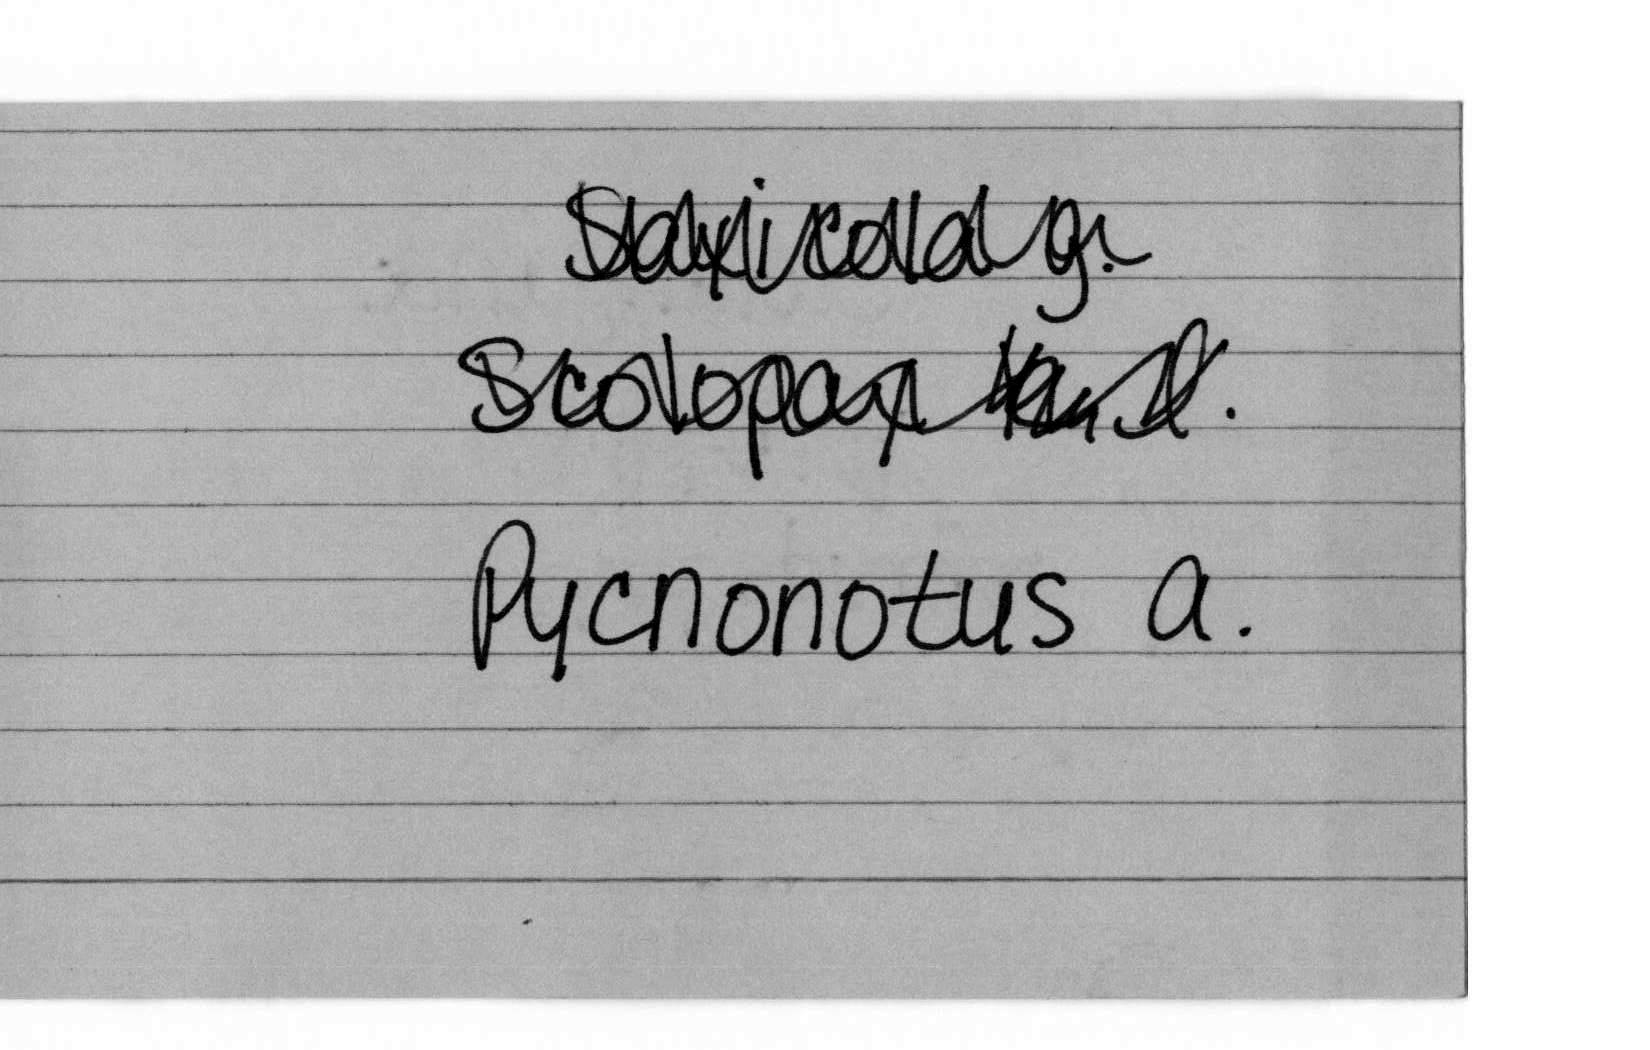 Saxicola g.
Scolopax
Pycnonotus a.